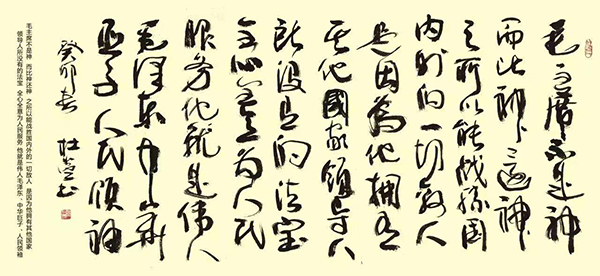 毛主席不是神
而比神還神
之所以能战胜国
内外的一切敌人
是因為他拥有
其他國家领导人
所没有的法宝
全心全意为人民
服务他就是伟人
毛泽东中华
巨子人民领袖
癸卯春
杜
毛主席不是神 而比神还神 之所以能战胜国内外的一切敌人 是因为他拥有其他国家
领导人所没有的法宝 全心全意为人民服务 他就是伟人毛泽东、中华巨子、人民领袖